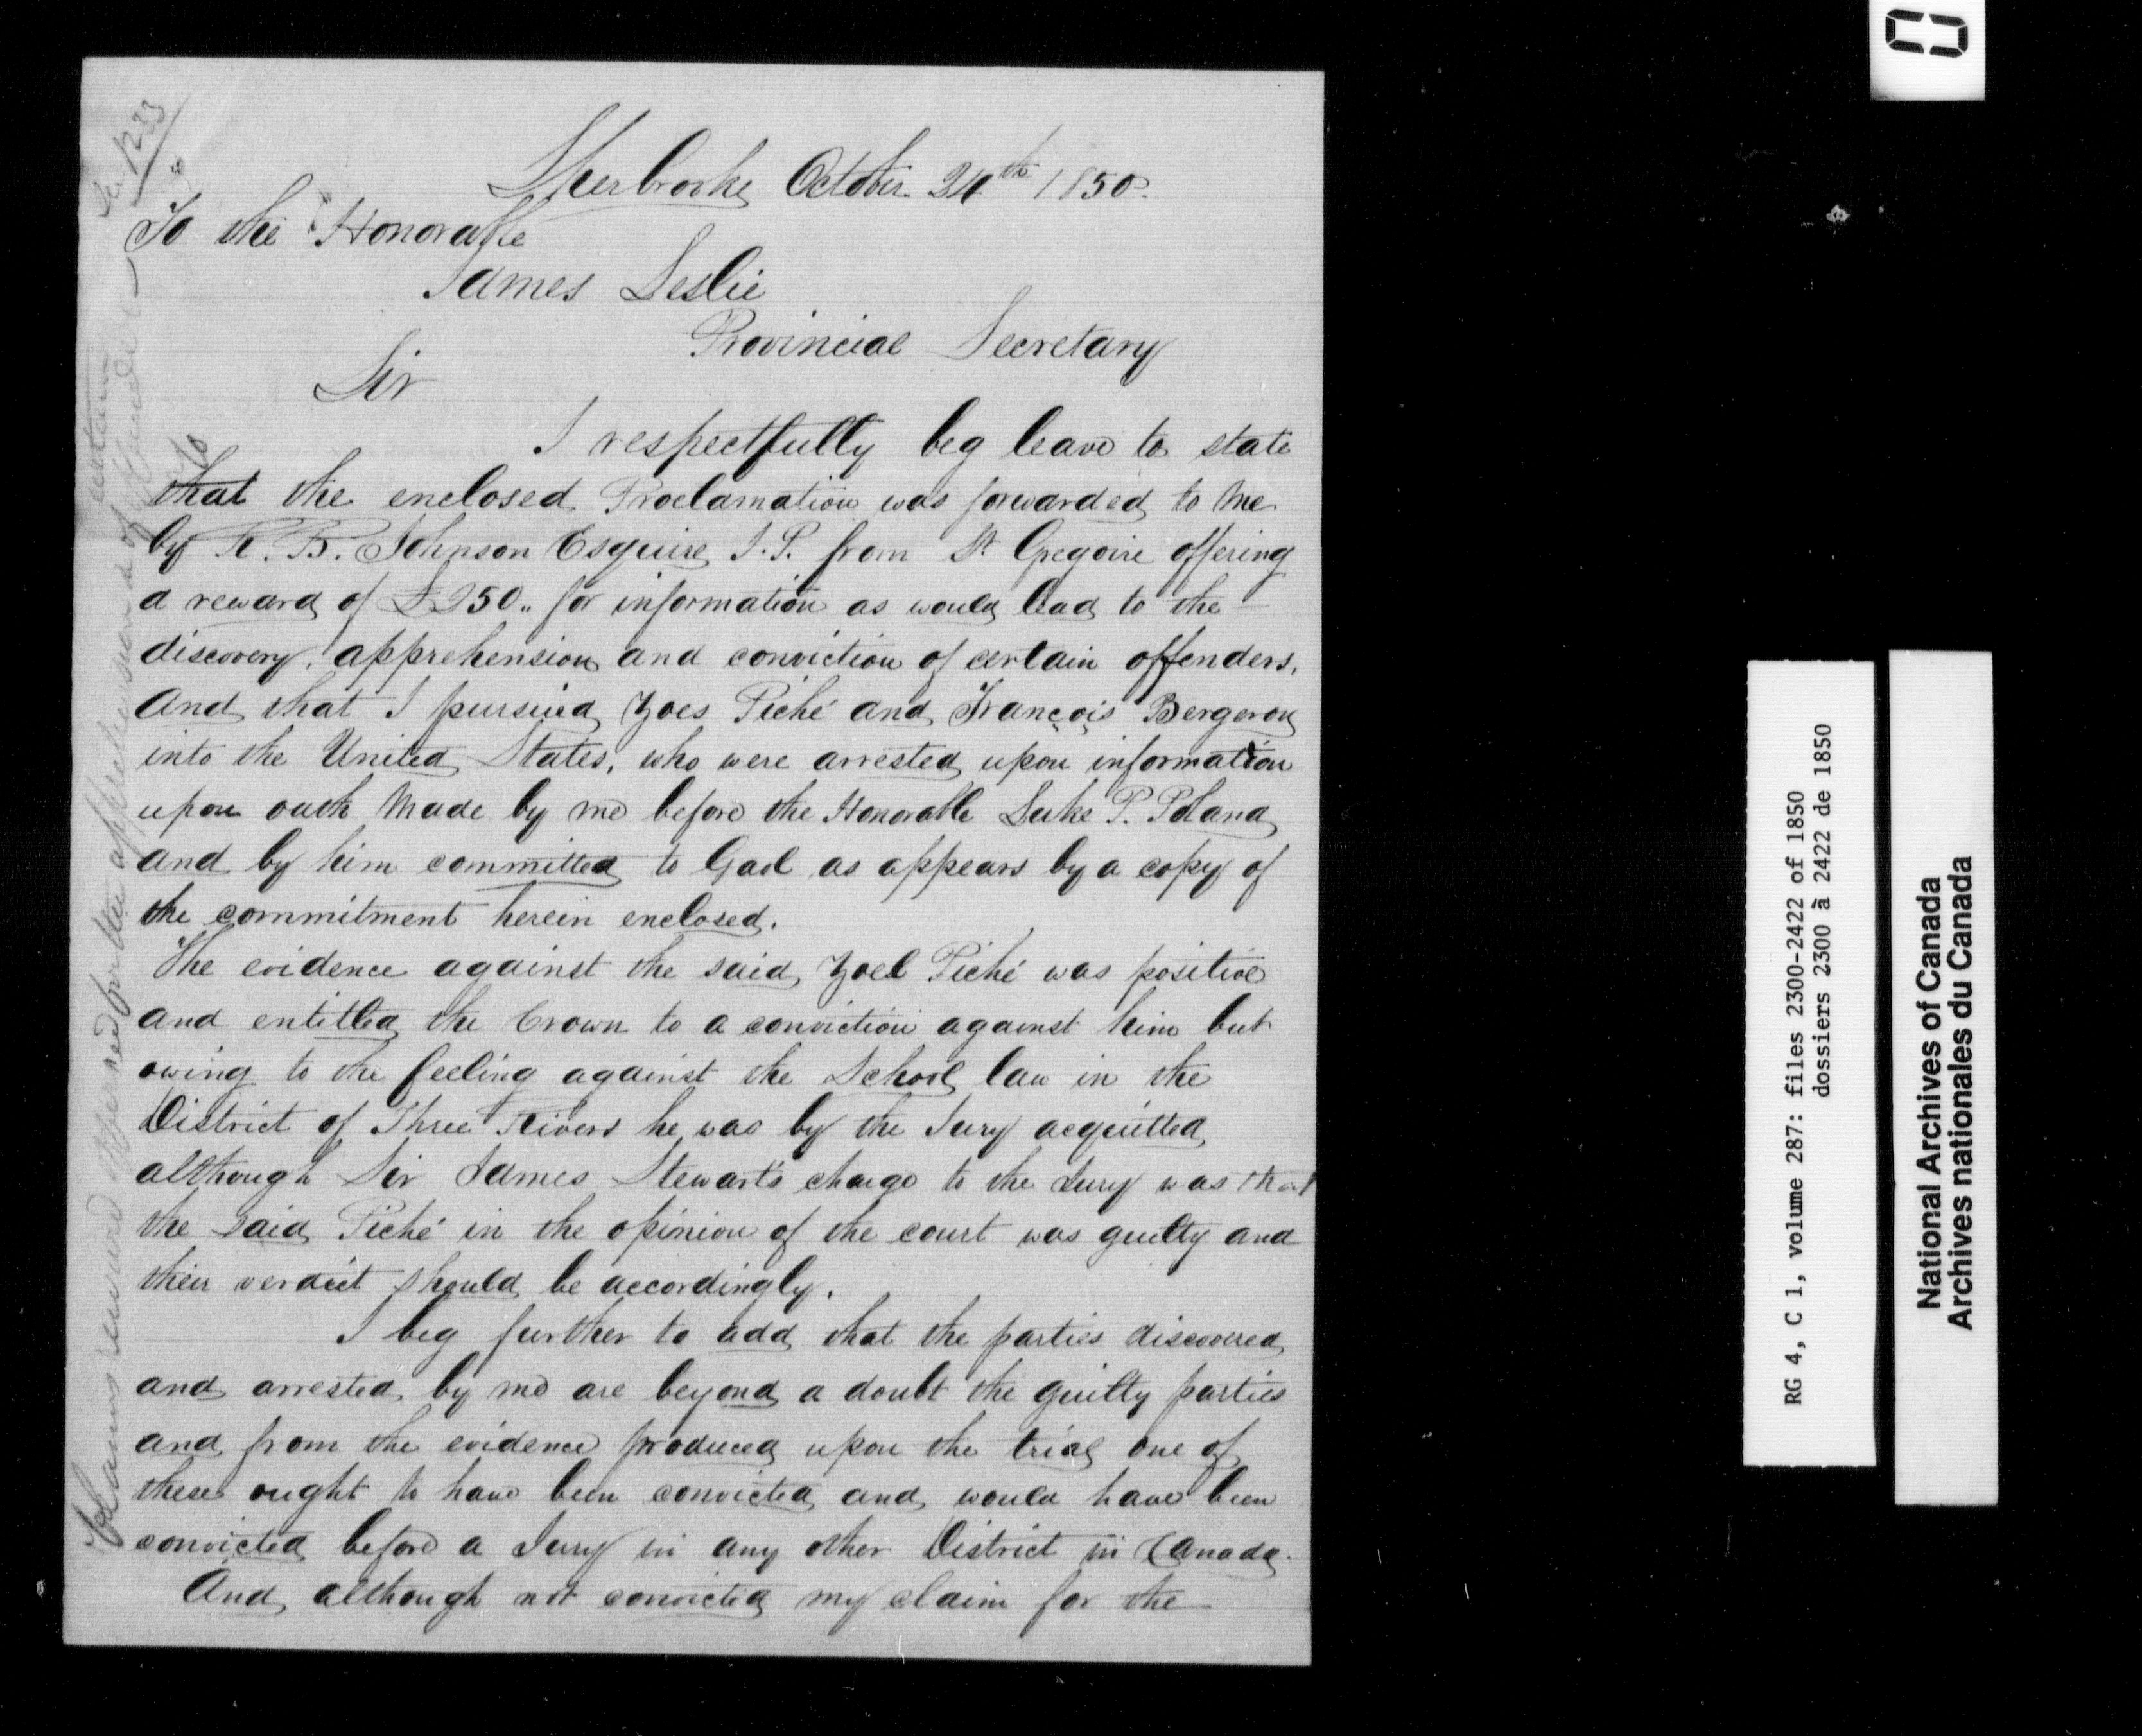 Sherbrooke October 24th 1850
To the Honorable
James Leslie
Provincial Secretary
Sir
I respectfully beg leave to state
that the enclosed Proclamation was forwarded to me
by R. B. Johnson Esquire J.P. from St Gregoire offering
a reward of £250.. for information as would lead to the
discovery, apprehension and conviction of certain offenders,
and that I pursued Zoes Piché and François Bergeron
into the United States, who were arrested upon information
upon oath made by me before the Honorable Luke P. Poland
and by him committed to Gaol as appears by a copy of
the commitment herein enclosed.
The evidence against the said Zoel Piché was positive
and entitled the Crown to a conviction against him but
owing to the feeling against the School law in the
District of Three Rivers he was by the Jury acquitted
although Sir James Stewart's charge to the Jury was that
the said Piché in the opinion of the court was guilty and
their verdict should be accordingly.
I beg further to add that the parties discovered
and arrested by me are beyond a doubt the guilty parties
and from the evidence produced upon the trial one of
these ought to have been convicted and would have been
convicted before a Jury in any other District in Canada.
And although not convicted my claim for the
1233
Claims reward offered for the apprehension of certain
offenders
RG 4, C 1, volume 287: files 2300-2422 of 1850
dossiers 2300 à 2422 de 1850
National Archives of Canada
Archives nationales du Canada